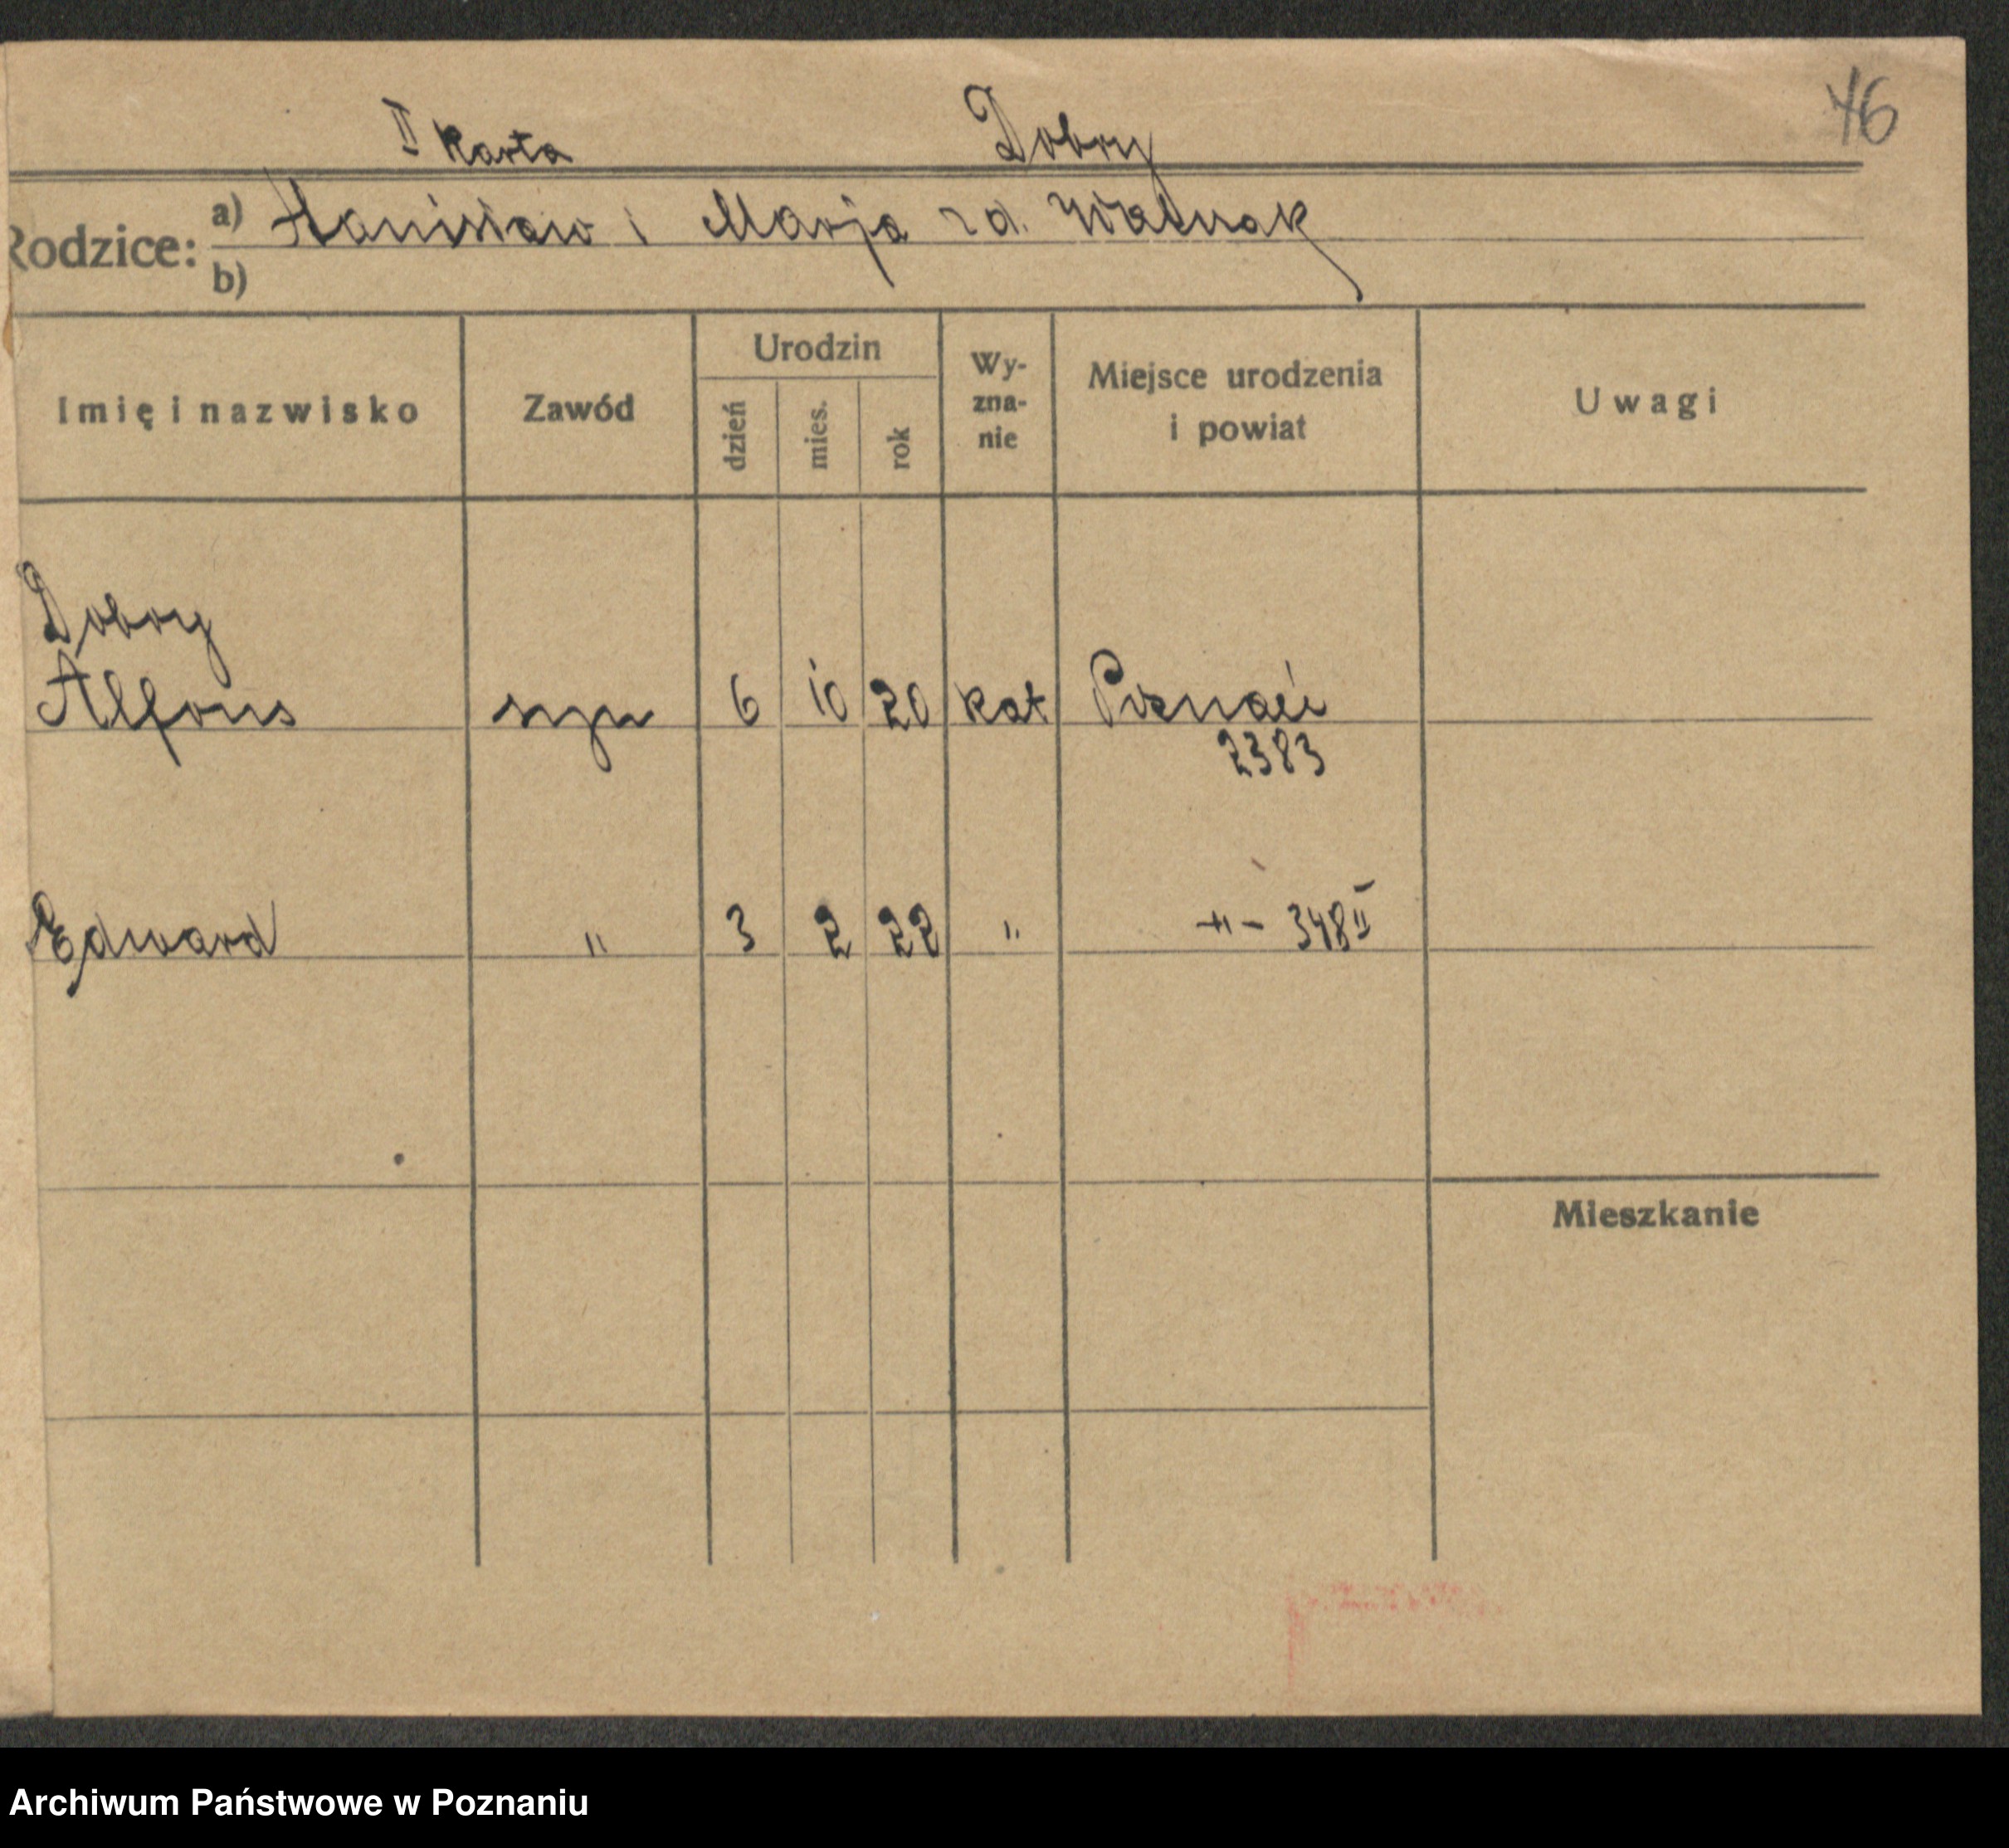 76
II Karta Dobry
Rodzice: a) Stanisław i Marja zd.
b)
Imię i nazwisko Zawód Urodzin dzień mies. rok Wy-zna-nie Miejsce urodzenia i powiat Uwagi
Dobry
Alfons syn 6 10 20 kat Poznań
2383
Edward " 3 2 22 " -"- 348 II
Mieszkanie
Archiwum Państwowe w Poznaniu